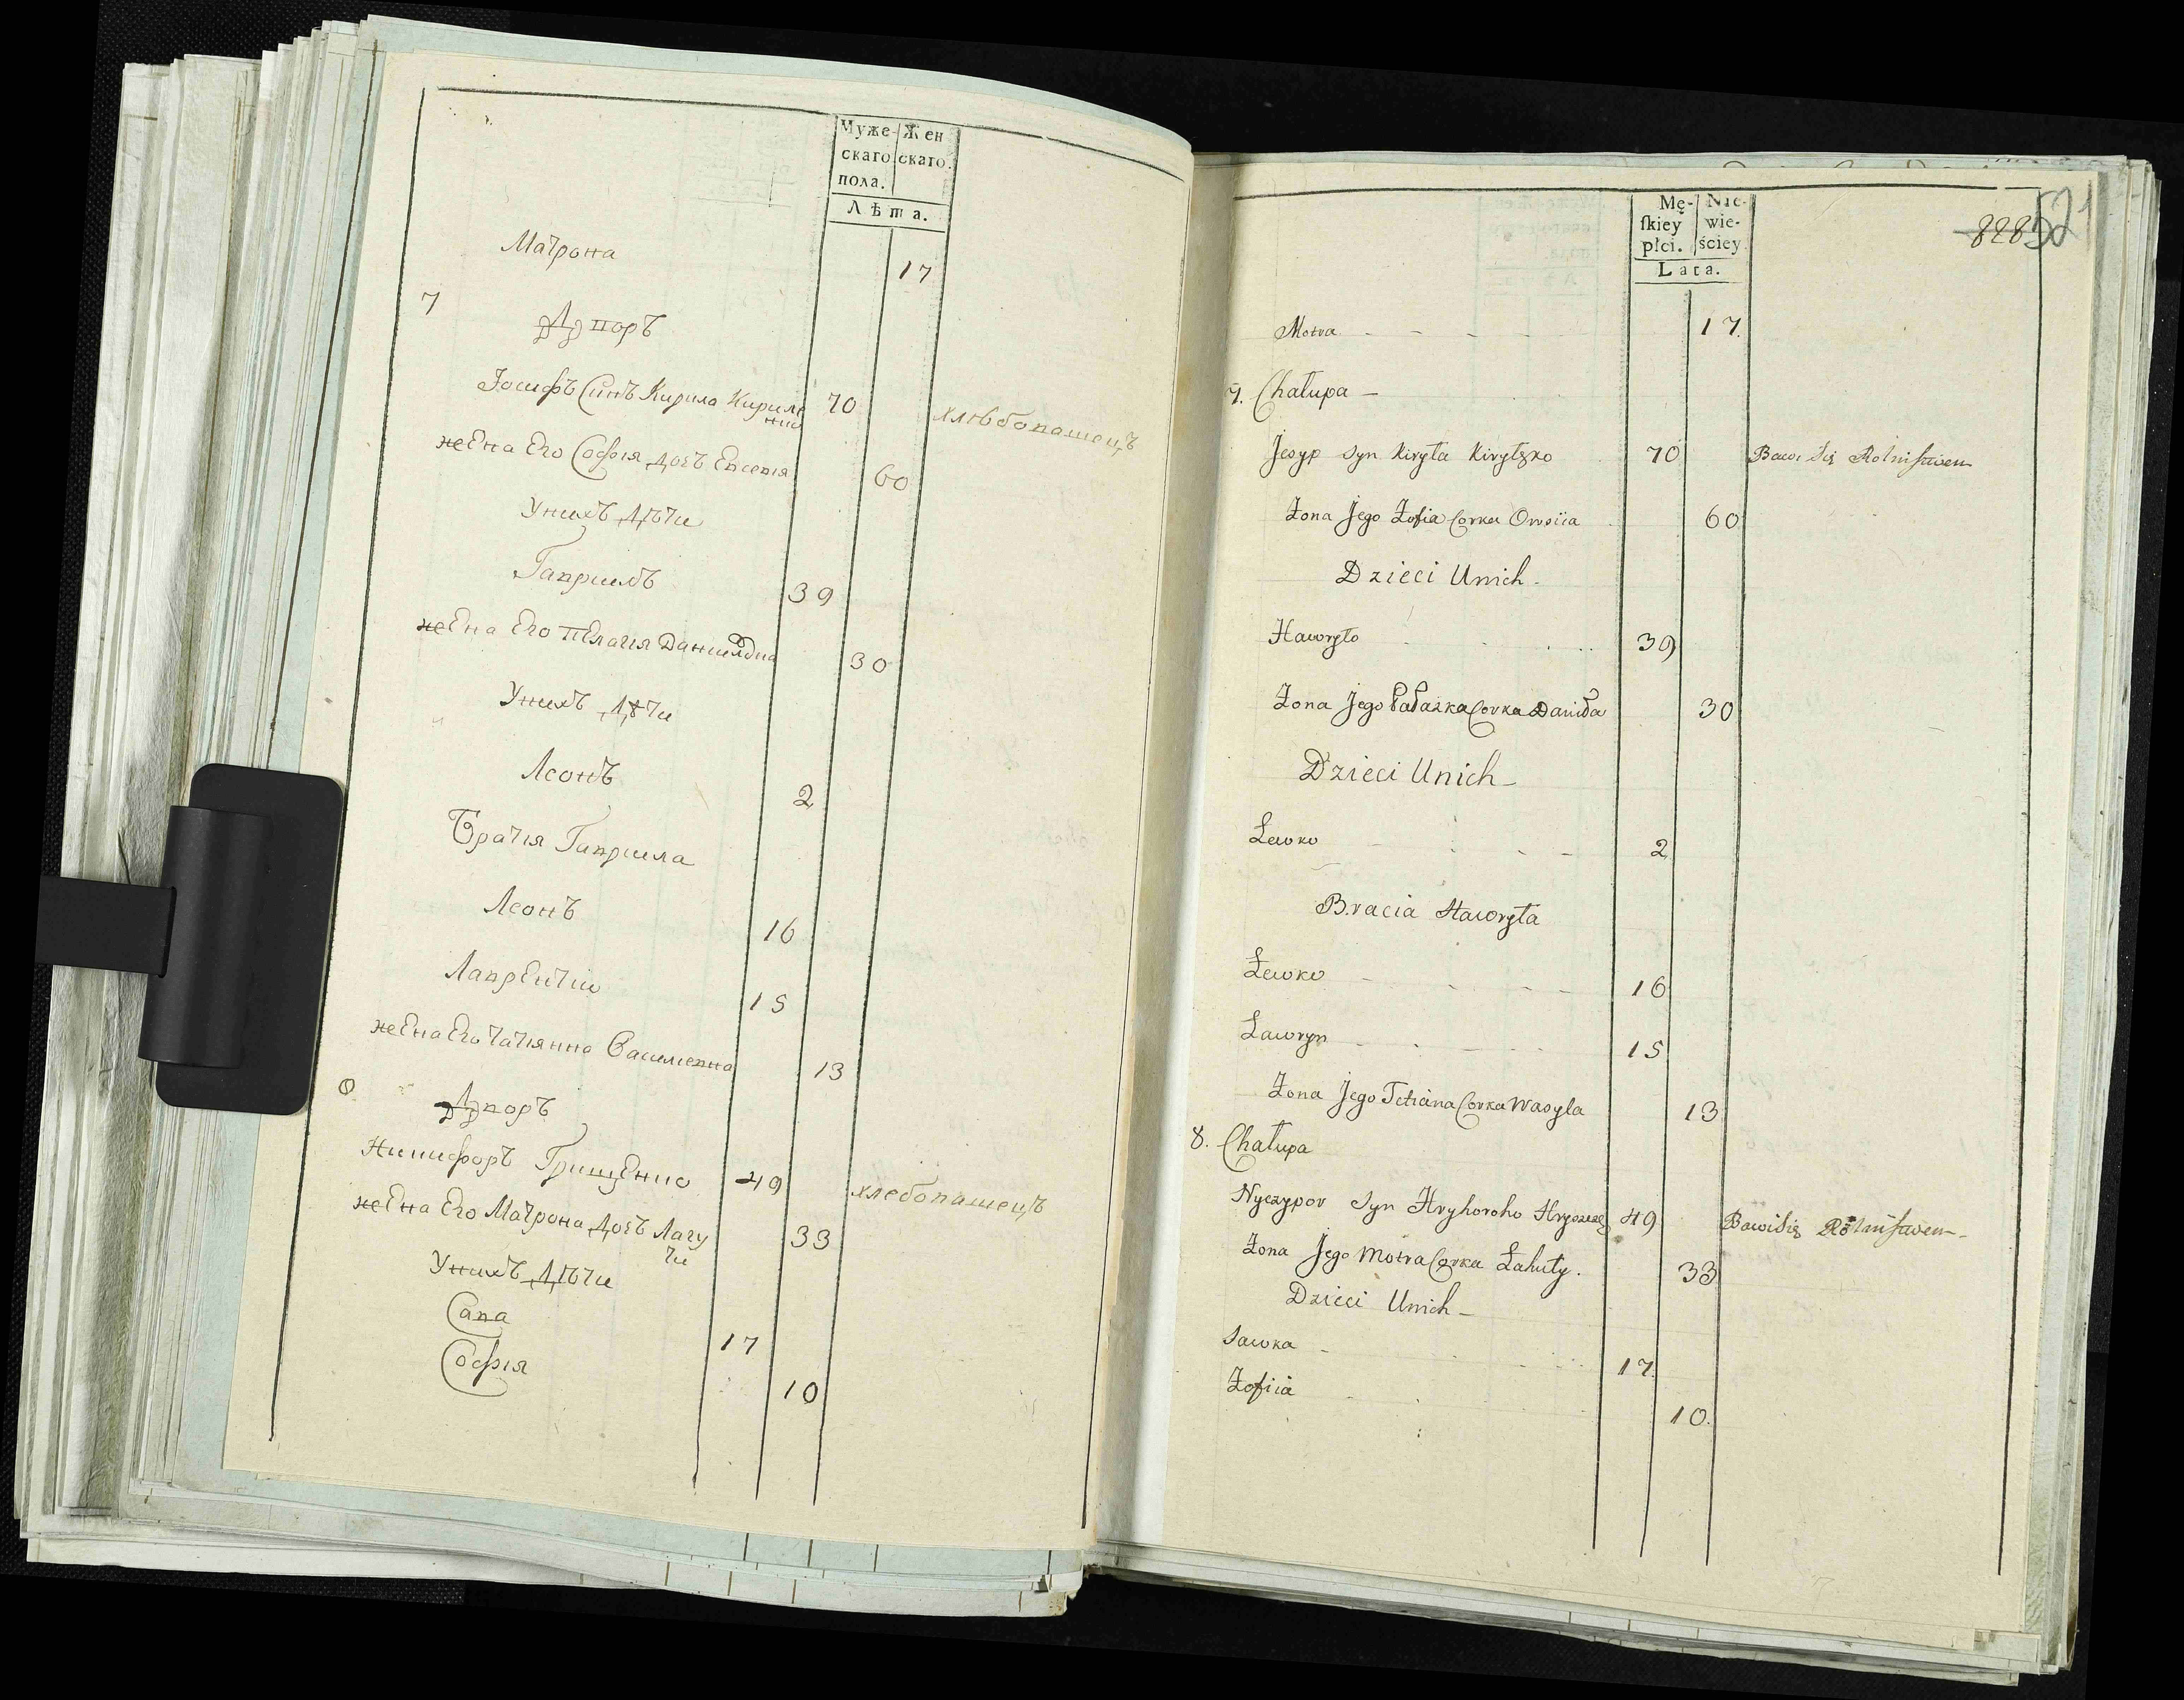 Муже- Жен
скаго скаго.
пола.
Лѣта.
Матрона 17
7 Дворъ
Іосифъ Синъ Кирила Кириле 70 хлѣбопашецъ
нко
жена Его Софія дочъ Евсевія 60
Унихъ Дѣти
Гавриилъ 39
жена Его Пелагія Даниилова 30
Унихъ Дѣти
Леонъ 2
Братія Гавриила
Леонъ 16
Лаврентій 15
жена Его Татіянна Василіевна 13
8 Дворъ
Никифоръ Грищенко 49 хлебопашецъ
жена Его Матрона дочъ Лагу 33
ти
Унихъ Дѣти
Сава 17
Софія 10
Mę- Nie-
skiey wie-
płci. ściey.
Lata.
828 52
Motra 17.
7. Chałupa
Jesyp syn Kiryła Kiryłzko 70 Bawi Się Rolnistwem
Żona Jego Zofia Corka Owsiia 60
Dzieci Unich
Hawryło 39
Żona Jego Pałazka Corka Daniła 30
Dzieci Unich
Lewko 2
Bracia Hawryła
Lewko 16
Lawryn 15
Żona Jego Tetiana Corka Wasyla 13
8. Chałupa
Nyczypor syn Hryhoroho 49 Bawi Się Rolnistwem
Żona Jego Motra Corka Lahuty. 33
Dzieci Unich
Sawka 17.
Zofiia 10.